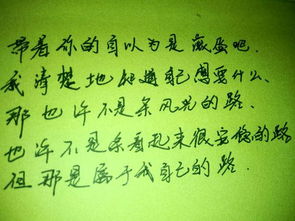 带着你的自以为是滚蛋吧.
我清楚地知道自己想要什么、
那也许不是条风光的路、
也许不是条看起来很安稳的路
但那是属于我自己的路.